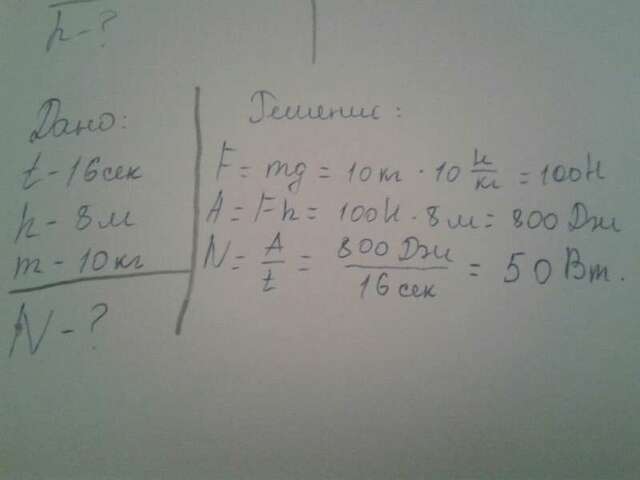 h - ?
Дано:
t - 16 сек
h - 8 м
m - 10 кг
N - ?
Решение:
F = mg = 10 кг · 10 Н/кг = 100 Н
A = Fh = 100 Н · 8 м = 800 Дж
N = A/t = 800 Дж/16 сек = 50 Вт.